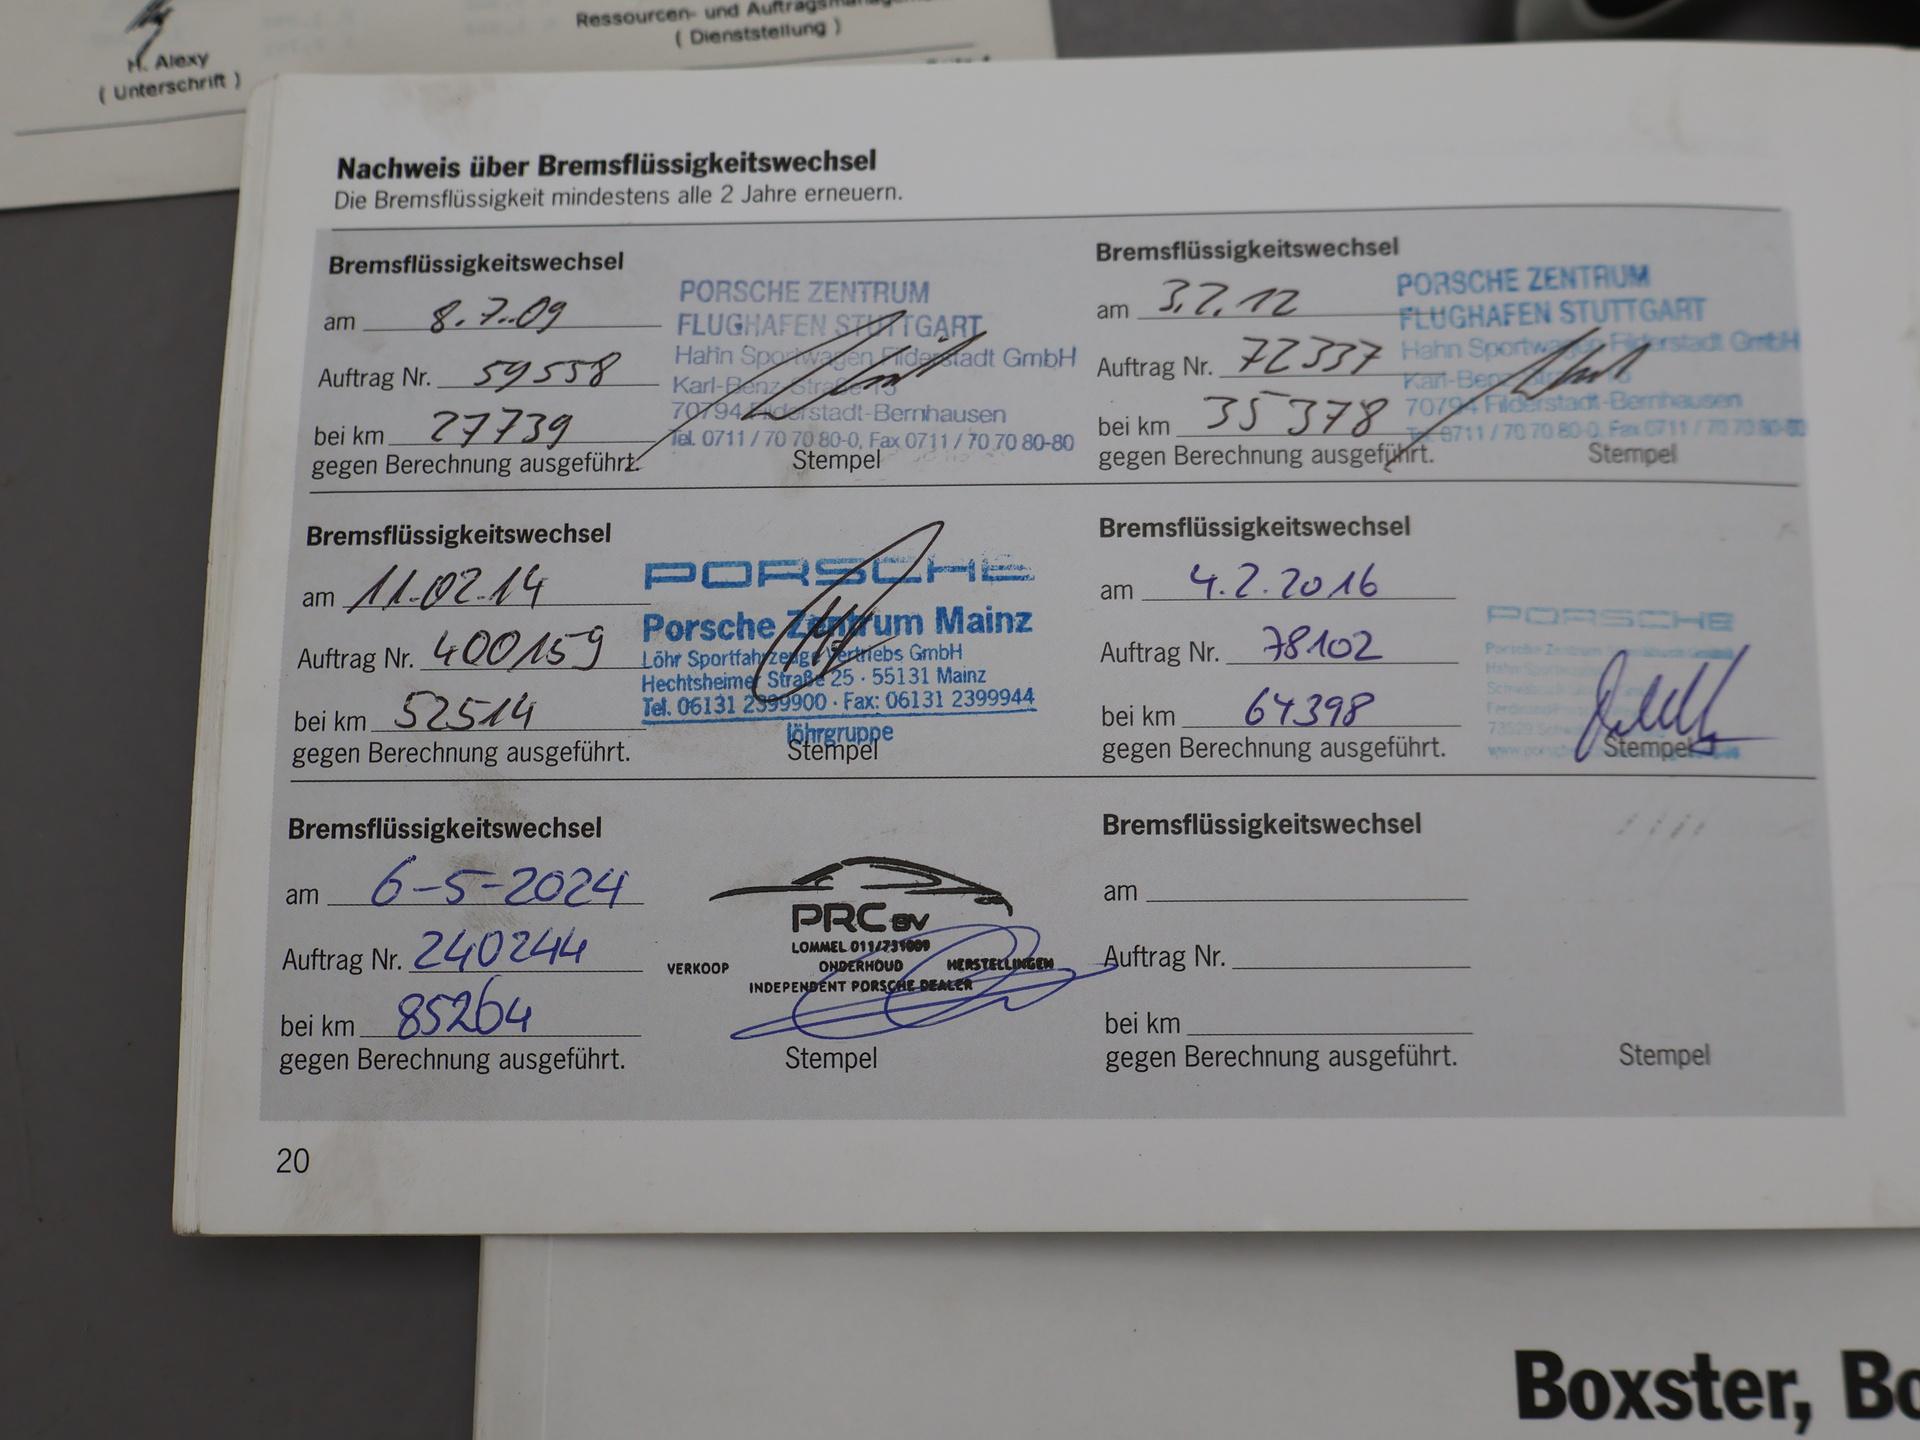 H. Alexy
( Unterschrift )
Ressourcen- und
( Dienststellung )
Nachweis über Bremsflüssigkeitswechsel
Die Bremsflüssigkeit mindestens alle 2 Jahre erneuern.
Bremsflüssigkeitswechsel
am 8.7.09
Auftrag Nr. 59558
bei km 27739
gegen Berechnung ausgeführt.
PORSCHE ZENTRUM
FLUGHAFEN STUTTGART
Hahn Sportwagen Filderstadt GmbH
Karl-Benz-Straße 13
70794 Filderstadt-Bernhausen
Tel. 0711 / 70 70 80-0, Fax 0711 / 70 70 80-80
Stempel
Bremsflüssigkeitswechsel
am 3.2.12
Auftrag Nr. 72337
bei km 35378
gegen Berechnung ausgeführt.
PORSCHE ZENTRUM
FLUGHAFEN STUTTGART
Hahn Sportwagen Filderstadt GmbH
Karl-Benz-Straße 13
70794 Filderstadt-Bernhausen
Tel. 0711 / 70 70 80-0, Fax 0711 / 70 70 80-80
Stempel
Bremsflüssigkeitswechsel
am 11.02.14
Auftrag Nr. 400159
bei km 52514
gegen Berechnung ausgeführt.
PORSCHE
Porsche Zentrum Mainz
Löhr Sportfahrzeuge Vertriebs GmbH
Hechtsheimer Straße 25 · 55131 Mainz
Tel. 06131 2399900 · Fax: 06131 2399944
löhrgruppe
Stempel
Bremsflüssigkeitswechsel
am 4.2.2016
Auftrag Nr. 78102
bei km 64398
gegen Berechnung ausgeführt.
PORSCHE
Porsche Zentrum
Stempel
Bremsflüssigkeitswechsel
am 6-5-2024
Auftrag Nr. 240244
bei km 85264
gegen Berechnung ausgeführt.
PRC BV
LOMMEL 011/731009
VERKOOP ONDERHOUD HERSTELLINGEN
INDEPENDENT PORSCHE DEALER
Stempel
Bremsflüssigkeitswechsel
am
Auftrag Nr.
bei km
gegen Berechnung ausgeführt.
Stempel
20
Boxster, Bo